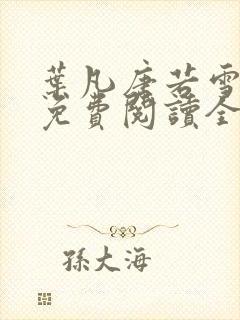 葉凡唐若雪
免費閱讀全
孫大海